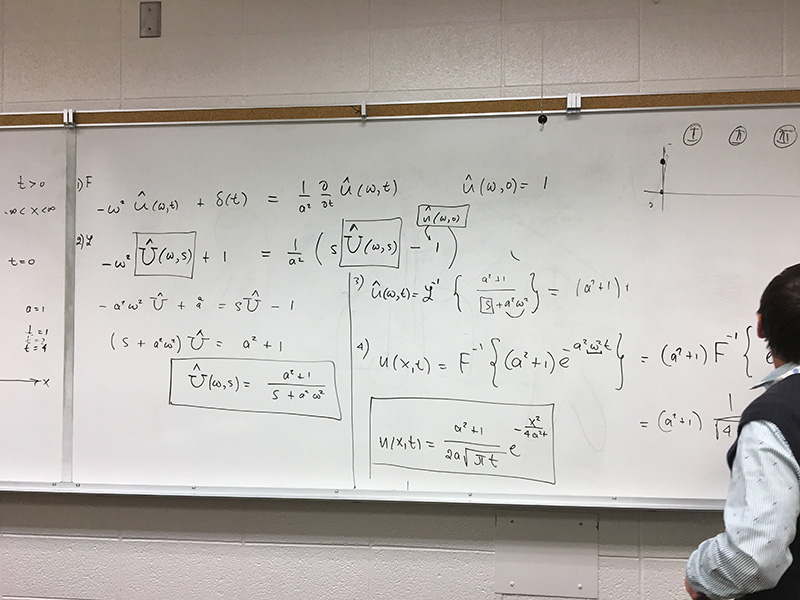 t > 0
-∞ < x < ∞
t = 0
a = 1
x
1) F
-ω² û(ω,t) + δ(t) = 1/a² ∂/∂t û(ω,t)    û(ω,0) = 1
û(ω,0)
2) ℒ
-ω² Û(ω,s) + 1 = 1/a² ( s Û(ω,s) - 1 )
-a²ω² Û + a² = sÛ - 1
(s + a²ω²) Û = a² + 1
Û(ω,s) = (a²+1)/(s + a²ω²)
3) û(ω,t) = ℒ⁻¹ { (a²+1)/(s + a²ω²) } = (a²+1)
4) u(x,t) = F⁻¹ { (a²+1) e^(-a²ω²t) } = (a²+1) F⁻¹ { e
= (a²+1) 1/√4
u(x,t) = (a²+1)/(2a√(πt)) e^(-x²/(4a²t))
I II III